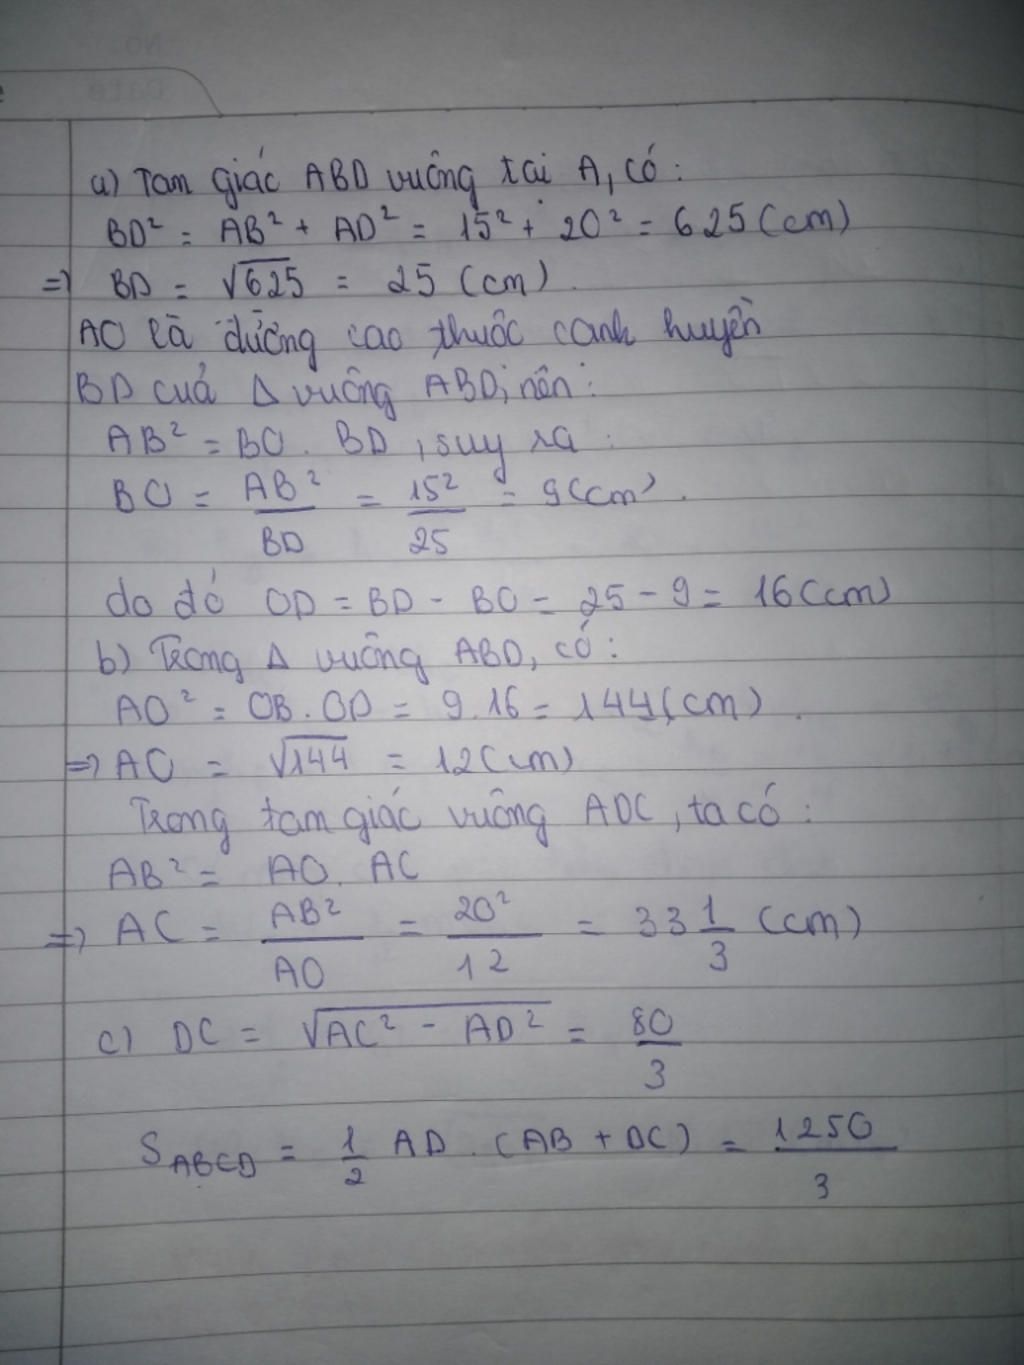 a) Tam giác ABD vuông tại A, có:
BD² = AB² + AD² = 15² + 20² = 625 (cm)
=> BD = √625 = 25 (cm).
AO là đường cao thuộc cạnh huyền
BD cuả Δ vuông ABD, nên:
AB² = BO. BD, suy ra:
BO = AB²/BD = 15²/25 = 9 (cm).
do đó OD = BD - BO = 25 - 9 = 16 (cm)
b) Trong Δ vuông ABD, có:
AO² = OB. OD = 9.16 = 144 (cm).
=> AO = √144 = 12 (cm)
Trong tam giác vuông ADC, ta có:
AB² = AO. AC
=> AC = AB²/AO = 20²/12 = 33 1/3 (cm)
c) DC = √(AC² - AD²) = 80/3
S ABCD = 1/2 AD. (AB + DC) = 1250/3